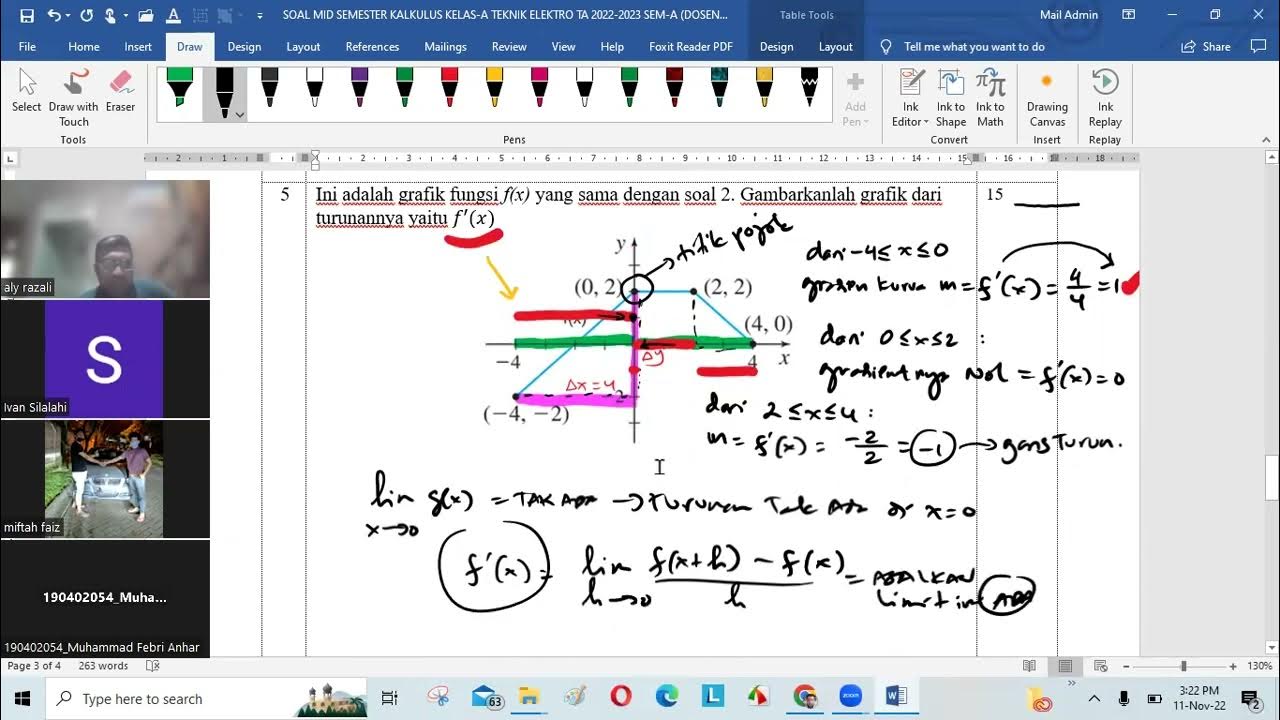 SOAL MID SEMESTER KALKULUS KELAS-A TEKNIK ELEKTRO TA 2022-2023 SEM-A (DOSEN...
Table Tools
Mail Admin
File Home Insert Draw Design Layout References Mailings Review View Help Foxit Reader PDF Design Layout Tell me what you want to do Share
Select
Draw with Touch
Eraser
Add Pen
Ink Editor
Ink to Shape
Ink to Math
Drawing Canvas
Ink Replay
Tools Pens Convert Insert Replay
2 1 1 2 3 4 5 6 7 8 9 10 11 12 13 14 15 16 17 18
5 Ini adalah grafik fungsi f(x) yang sama dengan soal 2. Gambarkanlah grafik dari 15
turunannya yaitu f′(x)
y
titik pojok
(0, 2)
(2, 2)
(4, 0)
-4
4
x
Δy
Δx = 4
(−4, −2)
dari -4 ≤ x ≤ 0
m = f'(x) = 4/4 = 1
dari 0 ≤ x ≤ 2 :
gradientnya Nol = f'(x) = 0
dari 2 ≤ x ≤ 4 :
m = f'(x) = -2/2 = -1 → garis Turun.
lim x→0 g(x) = TAK ADA → Turunan Tak Ada x = 0
f'(x) = lim h→0 f(x+h) - f(x) / h = ASALKAN
Limit ini ADA
aly razali
S
Ivan Silalahi
miftah faiz
190402054_Muha...
190402054_Muhammad Febri Anhar
Page 3 of 4 263 words
130%
Type here to search
63
L
zoom
W
3:22 PM
11-Nov-22
2